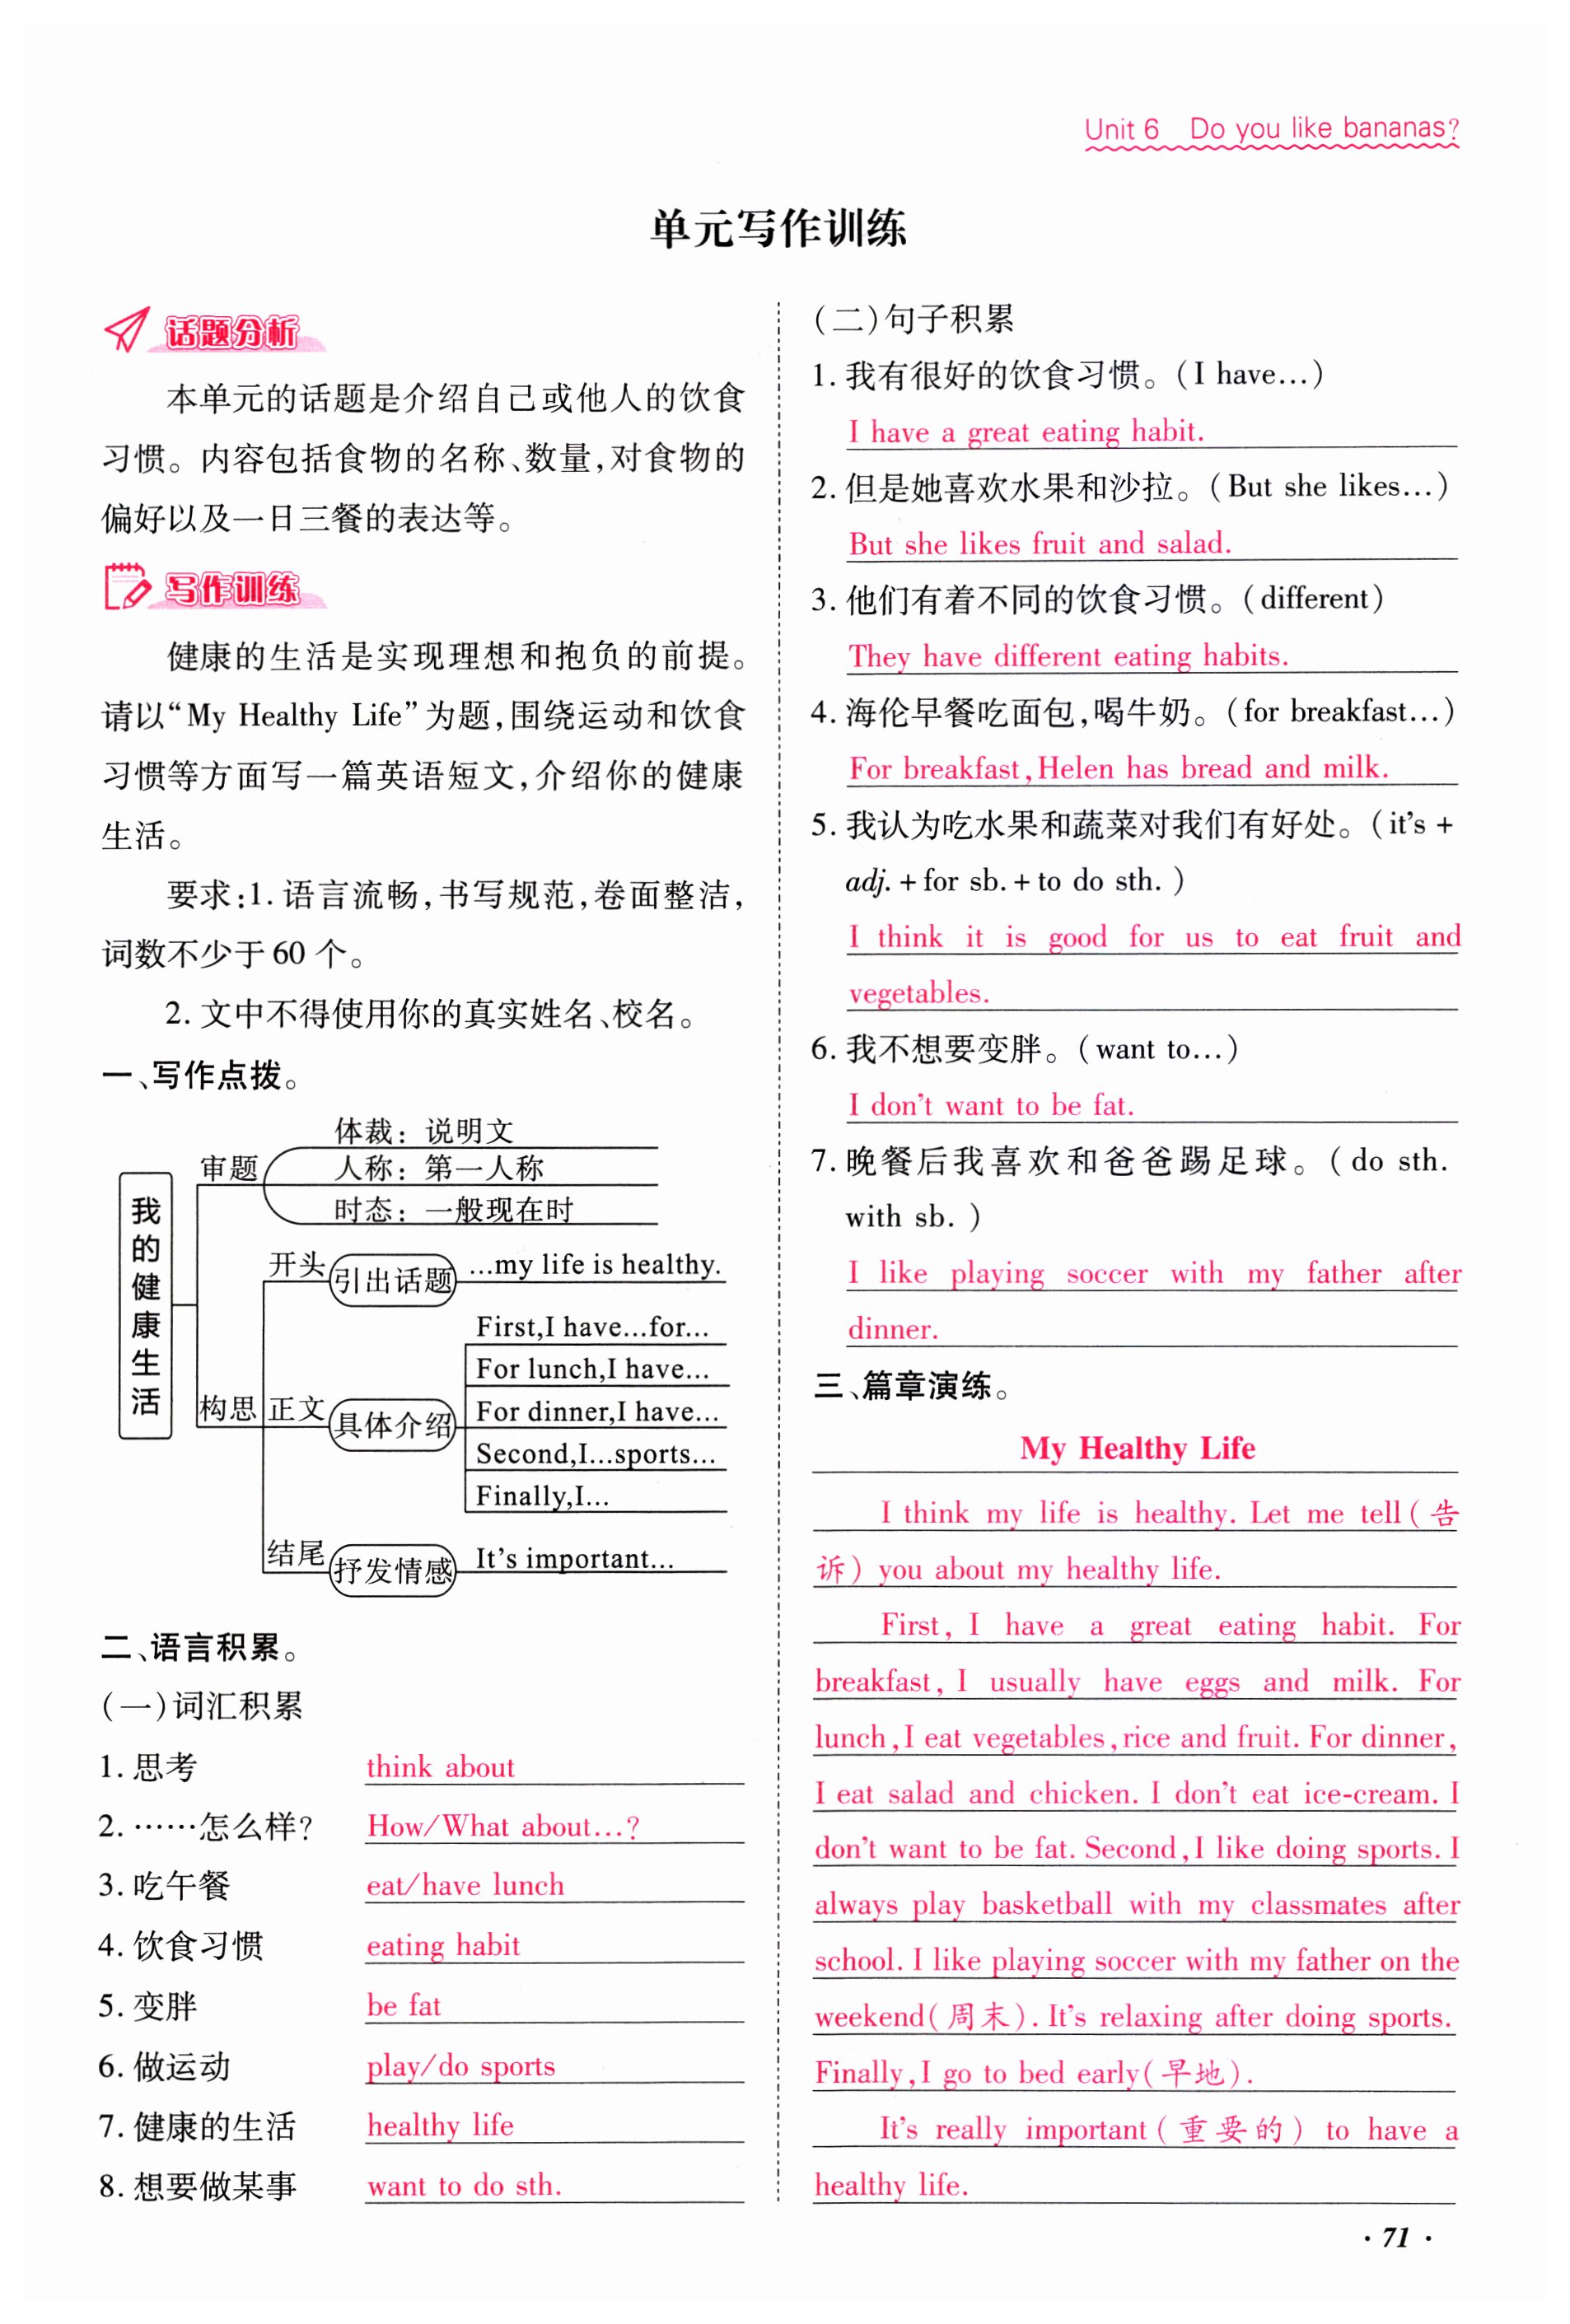 Unit 6 Do you like bananas?
单元写作训练
话题分析
本单元的话题是介绍自己或他人的饮食
习惯。内容包括食物的名称、数量,对食物的
偏好以及一日三餐的表达等。
写作训练
健康的生活是实现理想和抱负的前提。
请以“My Healthy Life”为题,围绕运动和饮食
习惯等方面写一篇英语短文,介绍你的健康
生活。
要求:1. 语言流畅,书写规范,卷面整洁,
词数不少于 60 个。
2. 文中不得使用你的真实姓名、校名。
一、写作点拨。
我的健康生活
审题
体裁：说明文
人称：第一人称
时态：一般现在时
构思
开头 引出话题 …my life is healthy.
正文 具体介绍
First,I have…for…
For lunch,I have…
For dinner,I have…
Second,I…sports…
Finally,I…
结尾 抒发情感 It's important…
二、语言积累。
(一)词汇积累
1. 思考 think about
2. ……怎么样? How/What about…?
3. 吃午餐 eat/have lunch
4. 饮食习惯 eating habit
5. 变胖 be fat
6. 做运动 play/do sports
7. 健康的生活 healthy life
8. 想要做某事 want to do sth.
(二)句子积累
1. 我有很好的饮食习惯。(I have…)
I have a great eating habit.
2. 但是她喜欢水果和沙拉。(But she likes…)
But she likes fruit and salad.
3. 他们有着不同的饮食习惯。(different)
They have different eating habits.
4. 海伦早餐吃面包,喝牛奶。(for breakfast…)
For breakfast,Helen has bread and milk.
5. 我认为吃水果和蔬菜对我们有好处。(it's +
adj. + for sb. + to do sth. )
I think it is good for us to eat fruit and
vegetables.
6. 我不想要变胖。(want to…)
I don't want to be fat.
7. 晚餐后我喜欢和爸爸踢足球。( do sth.
with sb. )
I like playing soccer with my father after
dinner.
三、篇章演练。
My Healthy Life
I think my life is healthy. Let me tell(告
诉) you about my healthy life.
First, I have a great eating habit. For
breakfast, I usually have eggs and milk. For
lunch,I eat vegetables,rice and fruit. For dinner,
I eat salad and chicken. I don't eat ice-cream. I
don't want to be fat. Second,I like doing sports. I
always play basketball with my classmates after
school. I like playing soccer with my father on the
weekend(周末). It's relaxing after doing sports.
Finally,I go to bed early(早地).
It's really important(重要的) to have a
healthy life.
· 71 ·